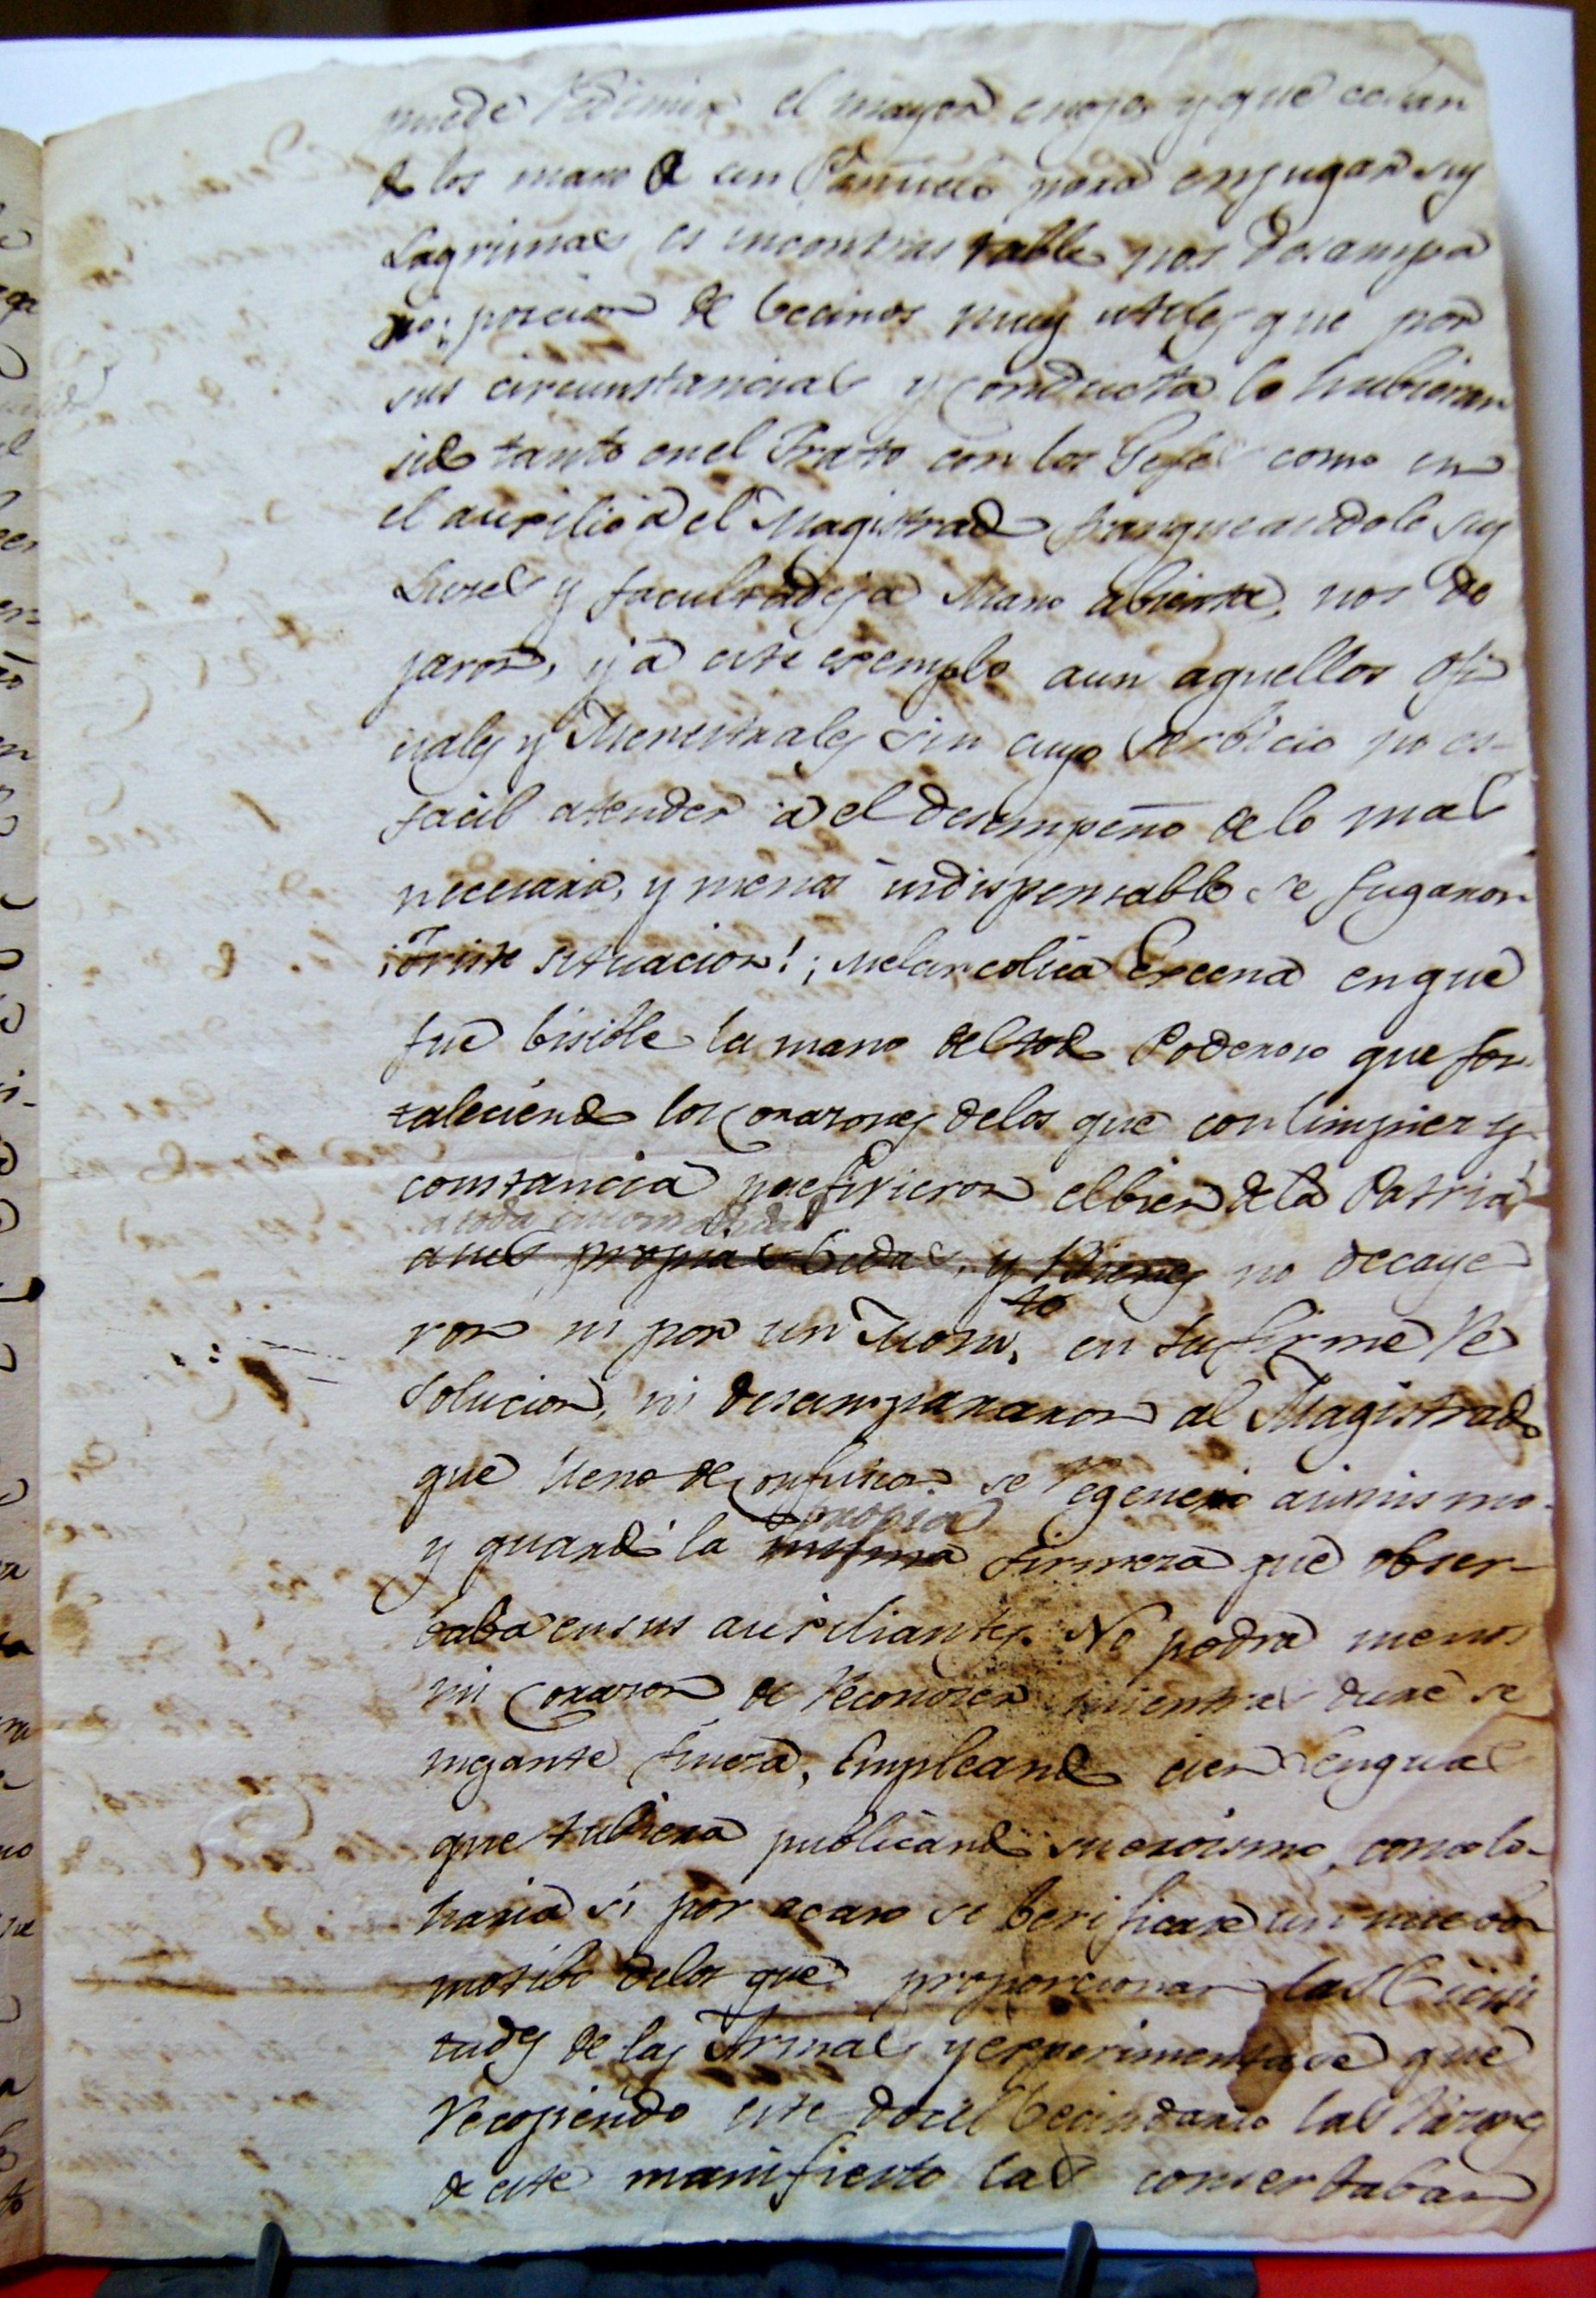 puede Redimir el mayor enojo y que echan
do los mano a un Pañuelo para enjugar sus
Lagrimas es incontrastable nos desampa
ro; porcion de becinos muy utiles que por
sus circunstancias y conducta lo hubieran
sido tanto en el Trato con los Gefes como en
el auxilio a el Magistrado franqueandole sus
Luses y facultades a Mano abierta, nos de
jaron, y a este exemplo aun aquellos ofi
ciales y Menestrales sin cuyo serbicio no es
facil atender a el desempeño de lo mas
necesario, y menos indispensable se fugaron
¡Triste situacion! ¡Melancolica Excena en que
fue bisible la mano del todo Poderoso que for
taleciendo los corazones de los que con limpiez y
constancia prefirieron el bien de la Patria
a toda incomodidad
a sus propias bidas, y Bienes no decaye
ron ni por un Momto. en su firme Re
solucion, ni desampararon al Magistrado
que lleno de confusion se regenero asimismo
propia
y guardo la misma firmeza que obser-
baba en sus auxiliantes. No podra menos
mi corazon de Reconocer mientras dure se
mejante fineza, Empleando cien Lenguas
que tubiera publicando su eroismo, como lo
haria si por acaso se berificase un nuebo
motibo de los que proporcionan las bicisi
tudes de las Armas y experimentase que
Recogiendo este docil becindario las Razones
de este manifiesto las conserbaban